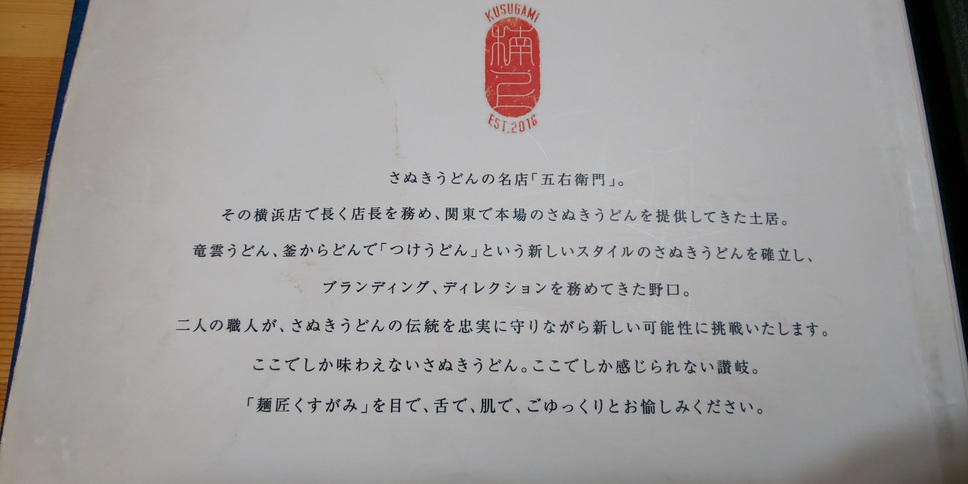 KUSUGAMI
楠上
EST.2016
さぬきうどんの名店「五右衛門」。
その横浜店で長く店長を務め、関東で本場のさぬきうどんを提供してきた土居。
竜雲うどん、釜からどんで「つけうどん」という新しいスタイルのさぬきうどんを確立し、
ブランディング、ディレクションを務めてきた野口。
二人の職人が、さぬきうどんの伝統を忠実に守りながら新しい可能性に挑戦いたします。
ここでしか味わえないさぬきうどん。ここでしか感じられない讃岐。
「麺匠くすがみ」を目で、舌で、肌で、ごゆっくりとお愉しみください。